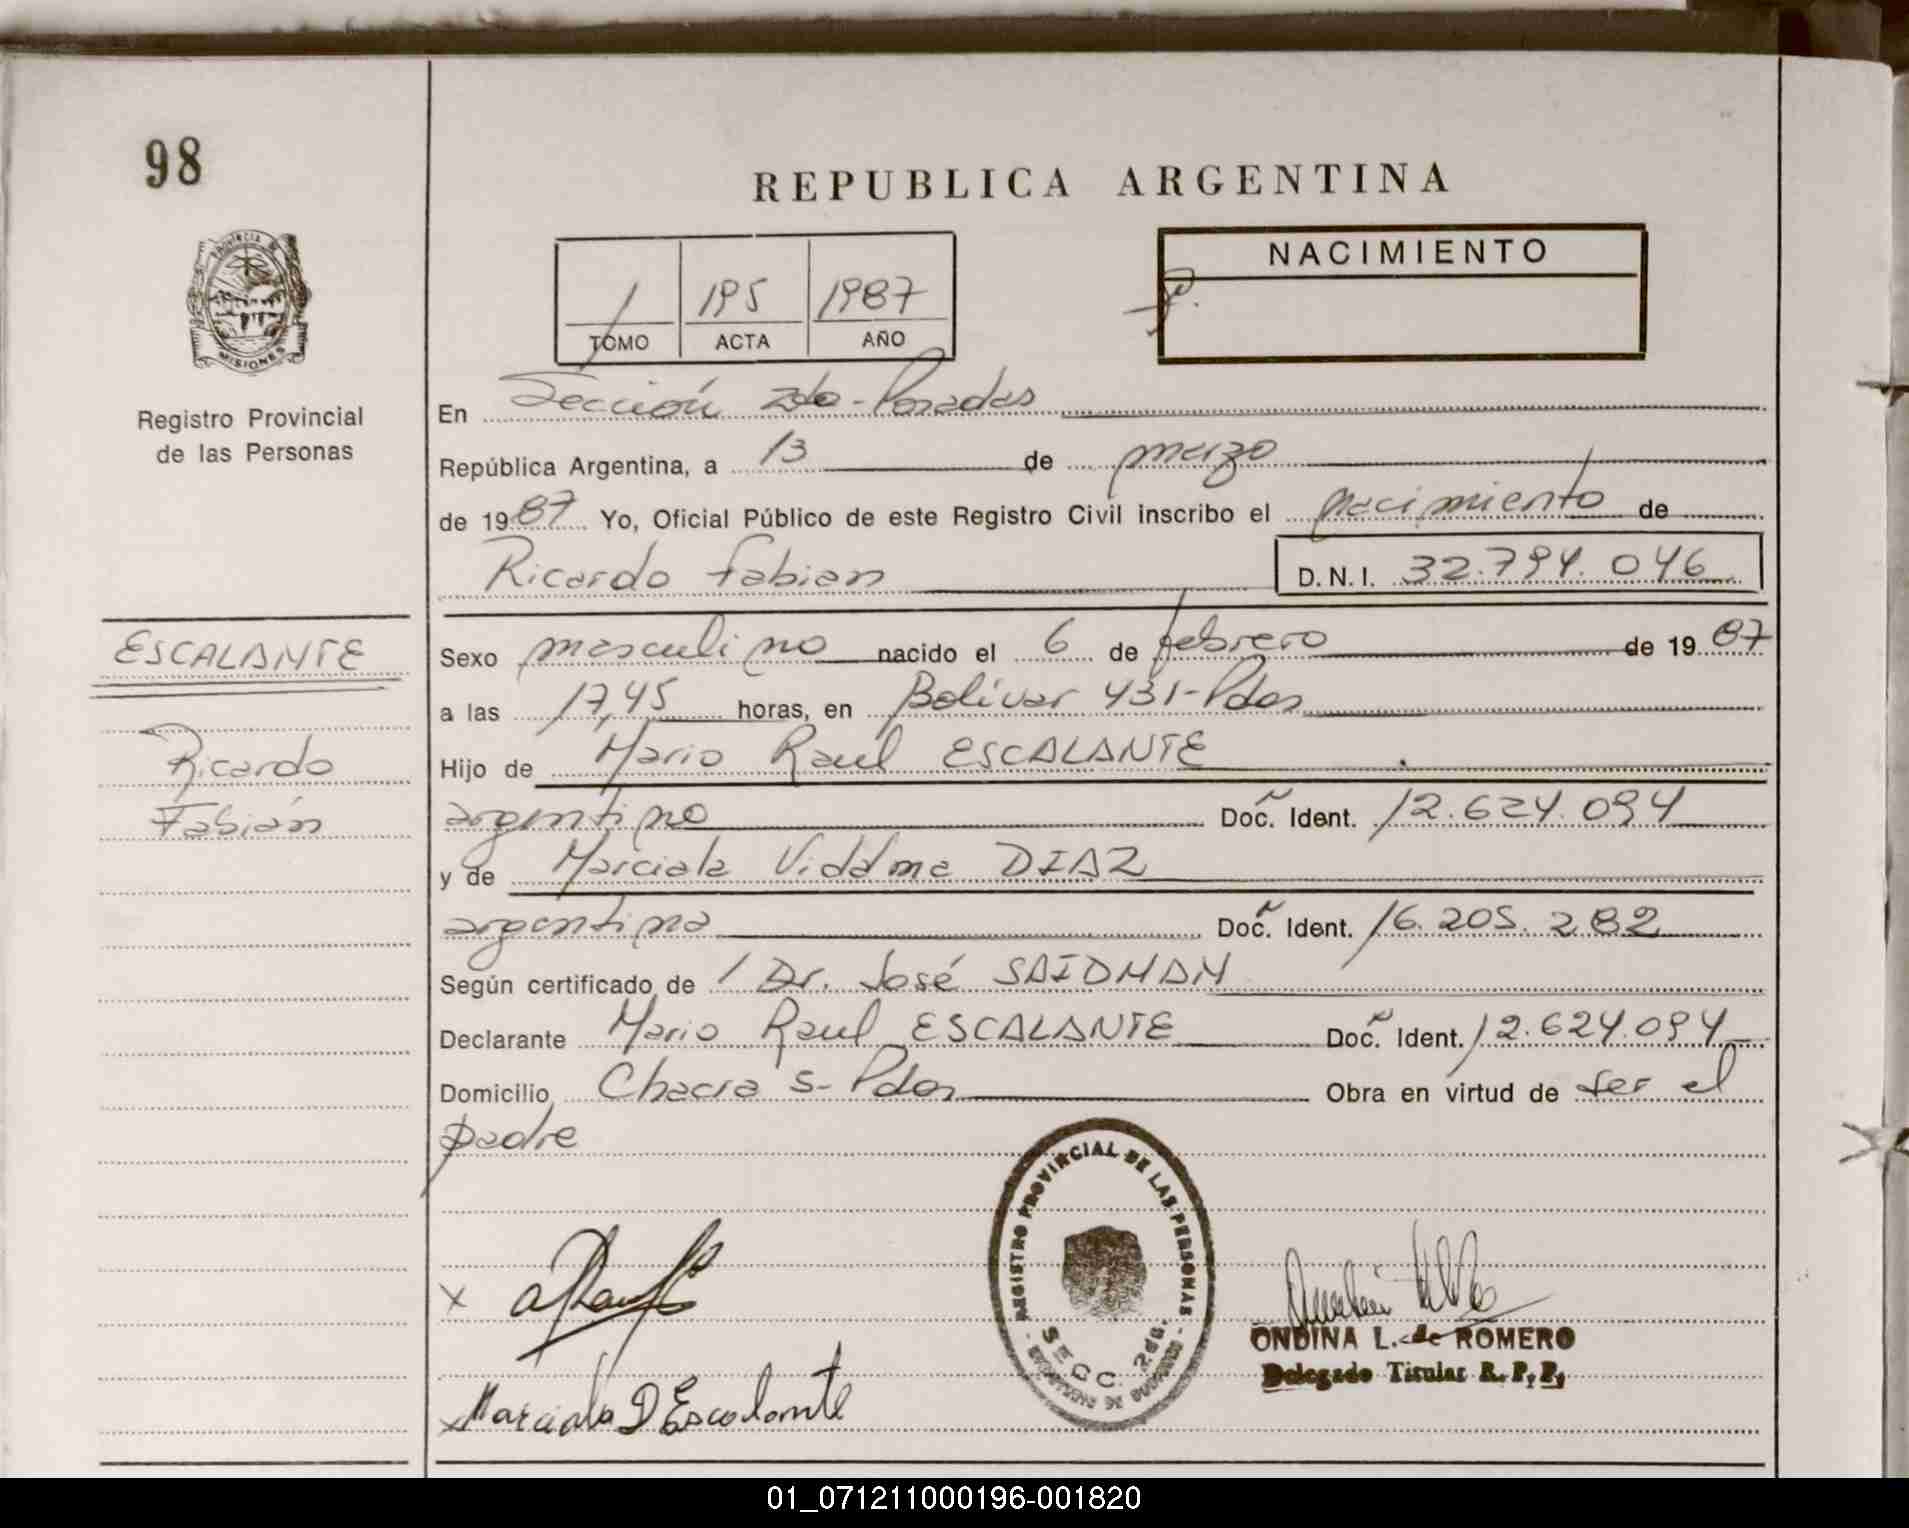 98
REPUBLICA ARGENTINA
NACIMIENTO
1 195 1987
TOMO ACTA AÑO
PROVINCIA DE
MISIONES
Registro Provincial
de las Personas
En Sección 2da-Posadas
República Argentina, a 13 de marzo
de 1987 Yo, Oficial Público de este Registro Civil inscribo el nacimiento de
Ricardo Fabian D.N.I. 32.794.046
ESCALANTE
Ricardo
Fabián
Sexo masculino nacido el 6 de febrero de 1987
a las 17,45 horas, en Bolivar 431-Pdas
Hijo de Mario Raul ESCALANTE
argentino Doc. Ident. 12.624.094
y de Marciala DIAZ
argentina Doc. Ident. 16.205.282
Según certificado de Dr. José SAIDMAN
Declarante Mario Raul ESCALANTE Doc. Ident. 12.624.094
Domicilio Chacra 5-Pdas Obra en virtud de ser el
padre
REGISTRO PROVINCIAL DE LAS PERSONAS
SECC. 2da.
x
ONDINA L. de ROMERO
Delegado Titular R.P.P.
x Marciala D Escalante
01_071211000196-001820